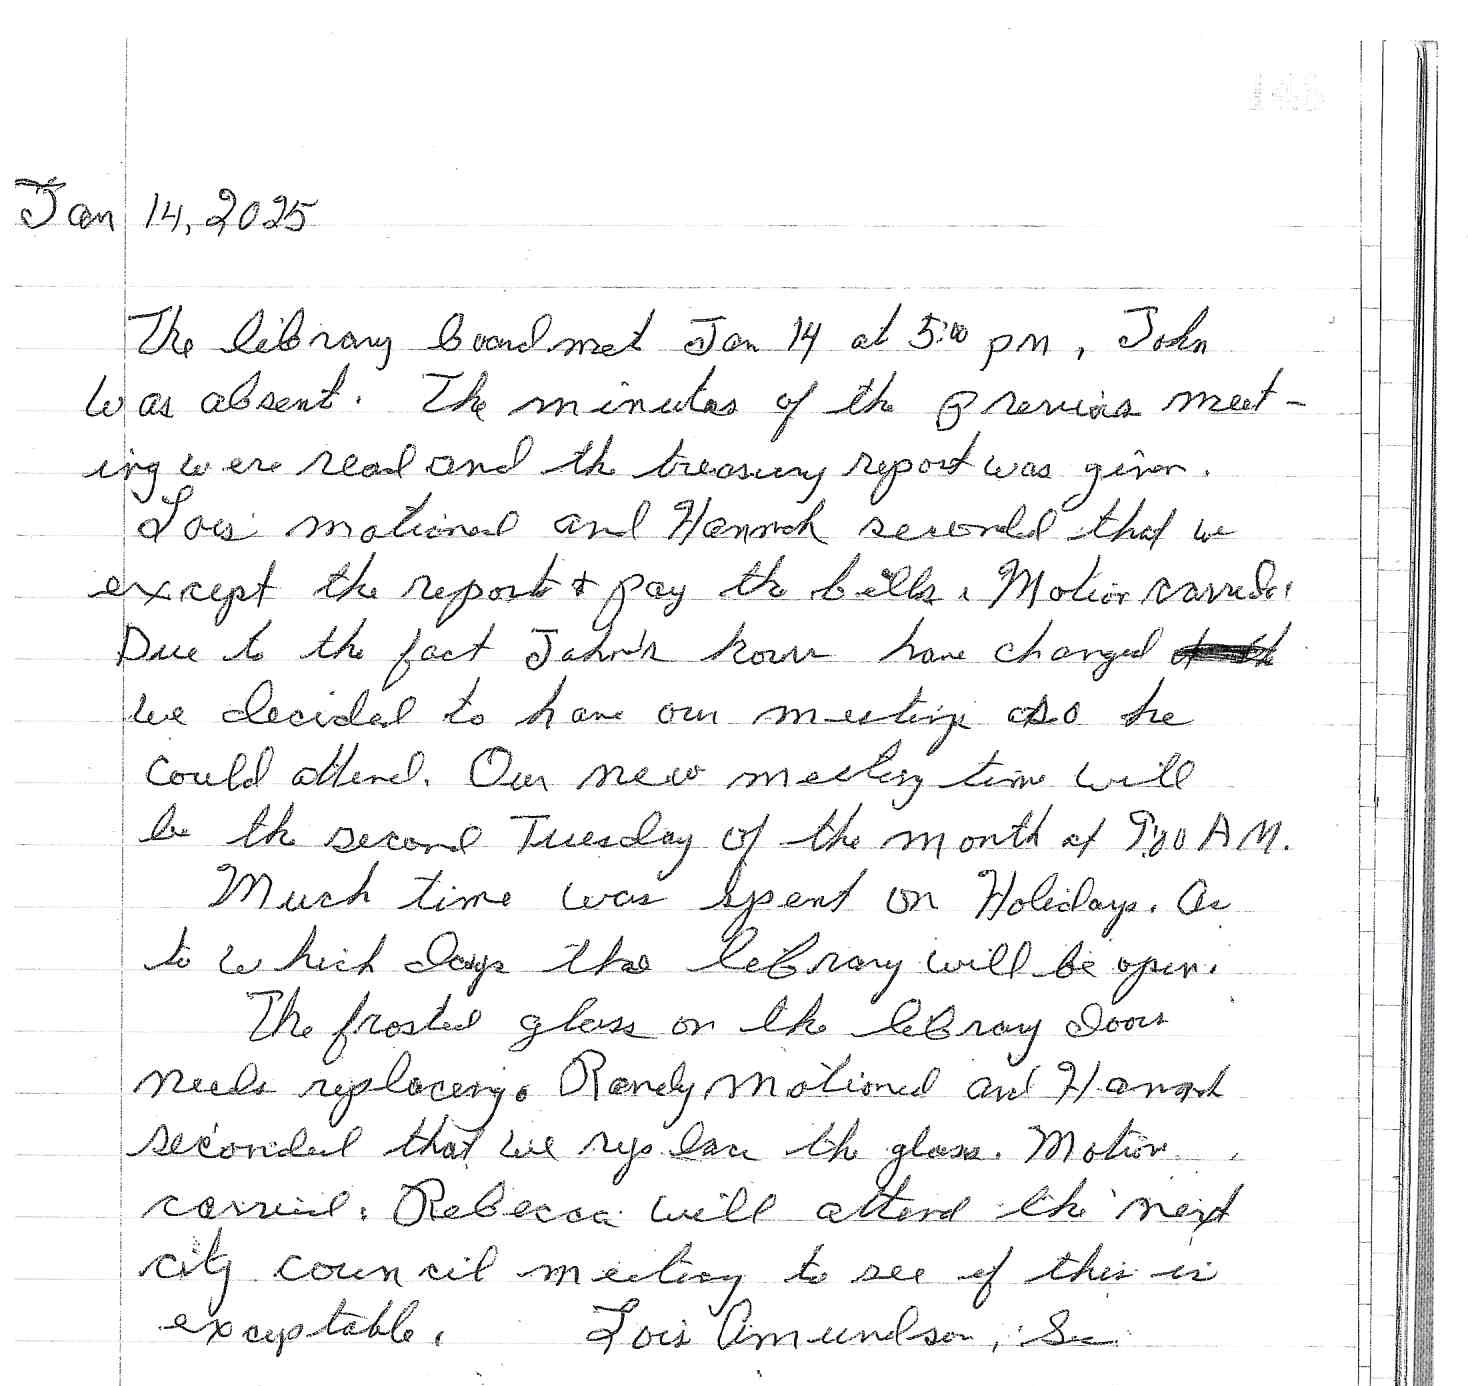 Jan 14, 2025
The library board met Jan 14 at 5:00 pm, John
was absent. The minutes of the previous meet-
ing were read and the treasury report was given.
Lois motioned and Hannah seconded that we
except the report & pay the bills. Motion carried.
Due to the fact John's hours have changed
we decided to have our meeting so he
could attend. Our new meeting time will
be the second Tuesday of the month at 9:00 AM.
Much time was spent on Holidays. As
to which days the library will be open.
The frosted glass on the libray doors
needs replacing. Randy motioned and Hannah
seconded that we replace the glass. Motion
carried. Rebecca will attend the next
city council meeting to see if this is
exceptable. Lois Amundson, Sec